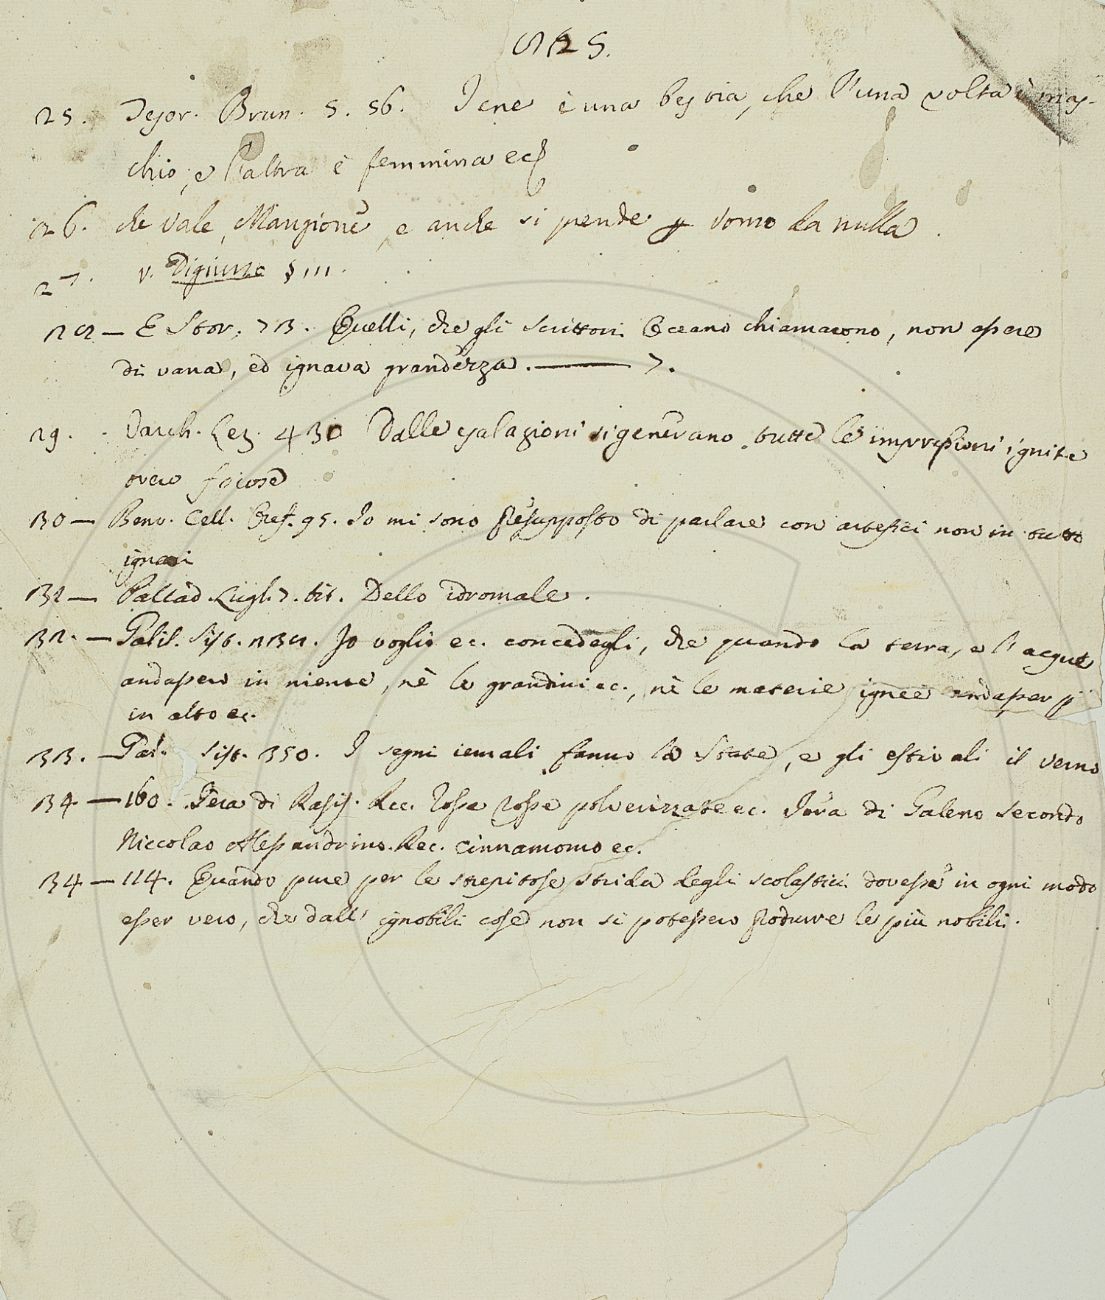 825.
25. Tesor. Brun. 5. 56. Iene è una bestia, che l'una volta è mas-
chio, e l'altra è femmina ec
26. che vale, Mangione, e anche si prende p uomo da nulla.
27. v. Digiuno § III.
28 — E Stor. 73. Quelli, che gli scrittori Oceano chiamarono, non esere
di vana, ed ignava grandezza. — 7.
29. Varch. Lez. 430 Dalle esalazioni si generano tutte le impressioni ignite
overo focose
30 — Benv. Cell. Oref. 95. Io mi sono presupposto di parlare con artefici non in tutto
ignari
31 — Pallad. Lugl. 7. tit. Dello idromale.
32. — Galil. Sist. Io voglio ec. concedegli, che quando la terra, e l'acque
andassero in niente, nè le grandini ec., nè le materie ignee andasser
in alto ec.
33. — Gal. Sist. 350. I segni iemali fanno la State, e gli estivali il verno
34 — 160. Iera di Rasis. Rec. Rose rosse polverizzate ec. Iera di Galeno secondo
Niccolao Alessandrino. Rec. cinnamomo ec.
34 — 114. Quando pure per le strepitose strida degli scolastici dovesse in ogni modo
esser vero, che dall' ignobili cose non si potessero produrre le più nobili.